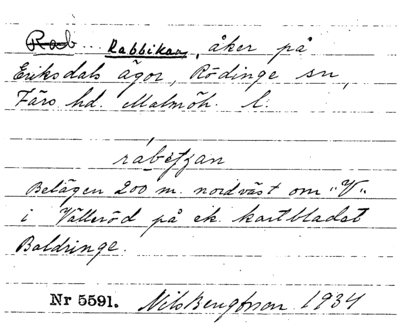 Rab... Rabbikan, åker på
Eriksdals ägor, Rödinge sn,
Färs hd. Malmöh. l.
Belägen 200 m. nordväst om "V"
i Välleröd på ek. kartbladet
Baldringe.
Nr 5591. Nils Bengtsson 1934